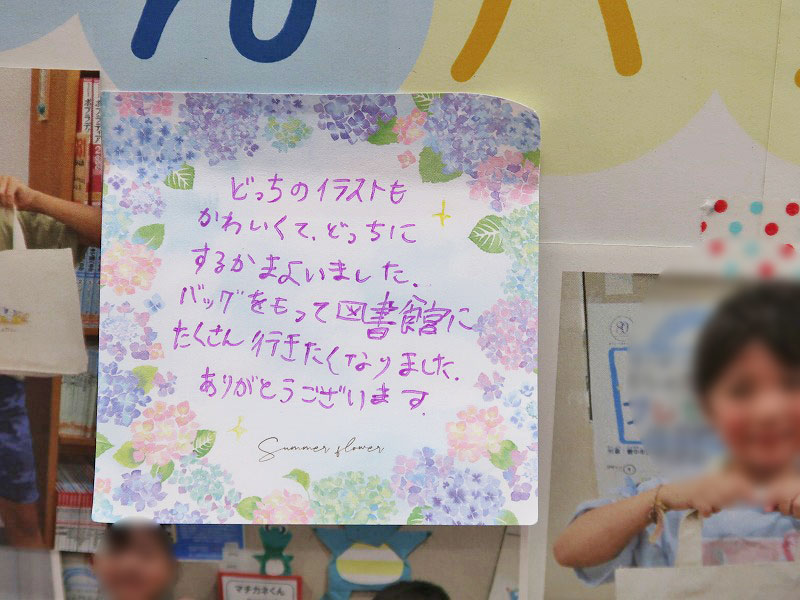 ん
どっちのイラストも
かわいくて、どっちに
するかまよいました.
バッグをもって図書館に
たくさん行きたくなりました.
ありがとうございます.
Summer flower
マチカネくん